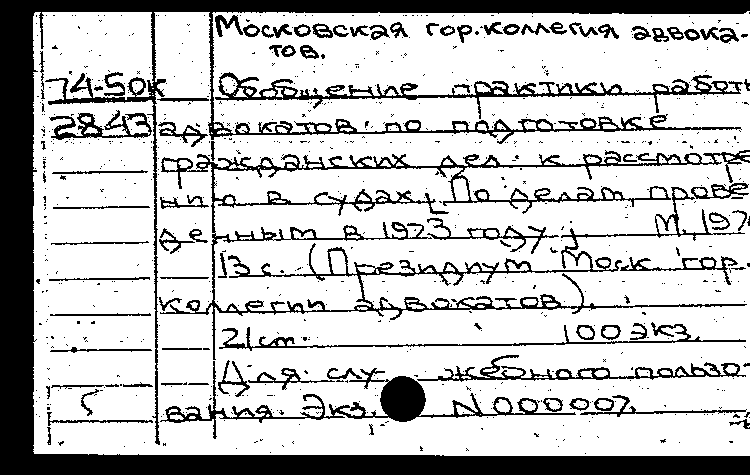 Московская гор. коллегия адвока-
тов.
74-50к Обобщение практики работ
2843 адвокатов по подготовке
гражданских дел к рассмотре
нию в судах. [По делам, прове
денным в 1973 году]. М., 197
13 с. (Президиум Моск. гор.
коллегии адвокатов).
21 см. 100 экз.
Для служебного пользо
5 вания. Экз. N 000007.